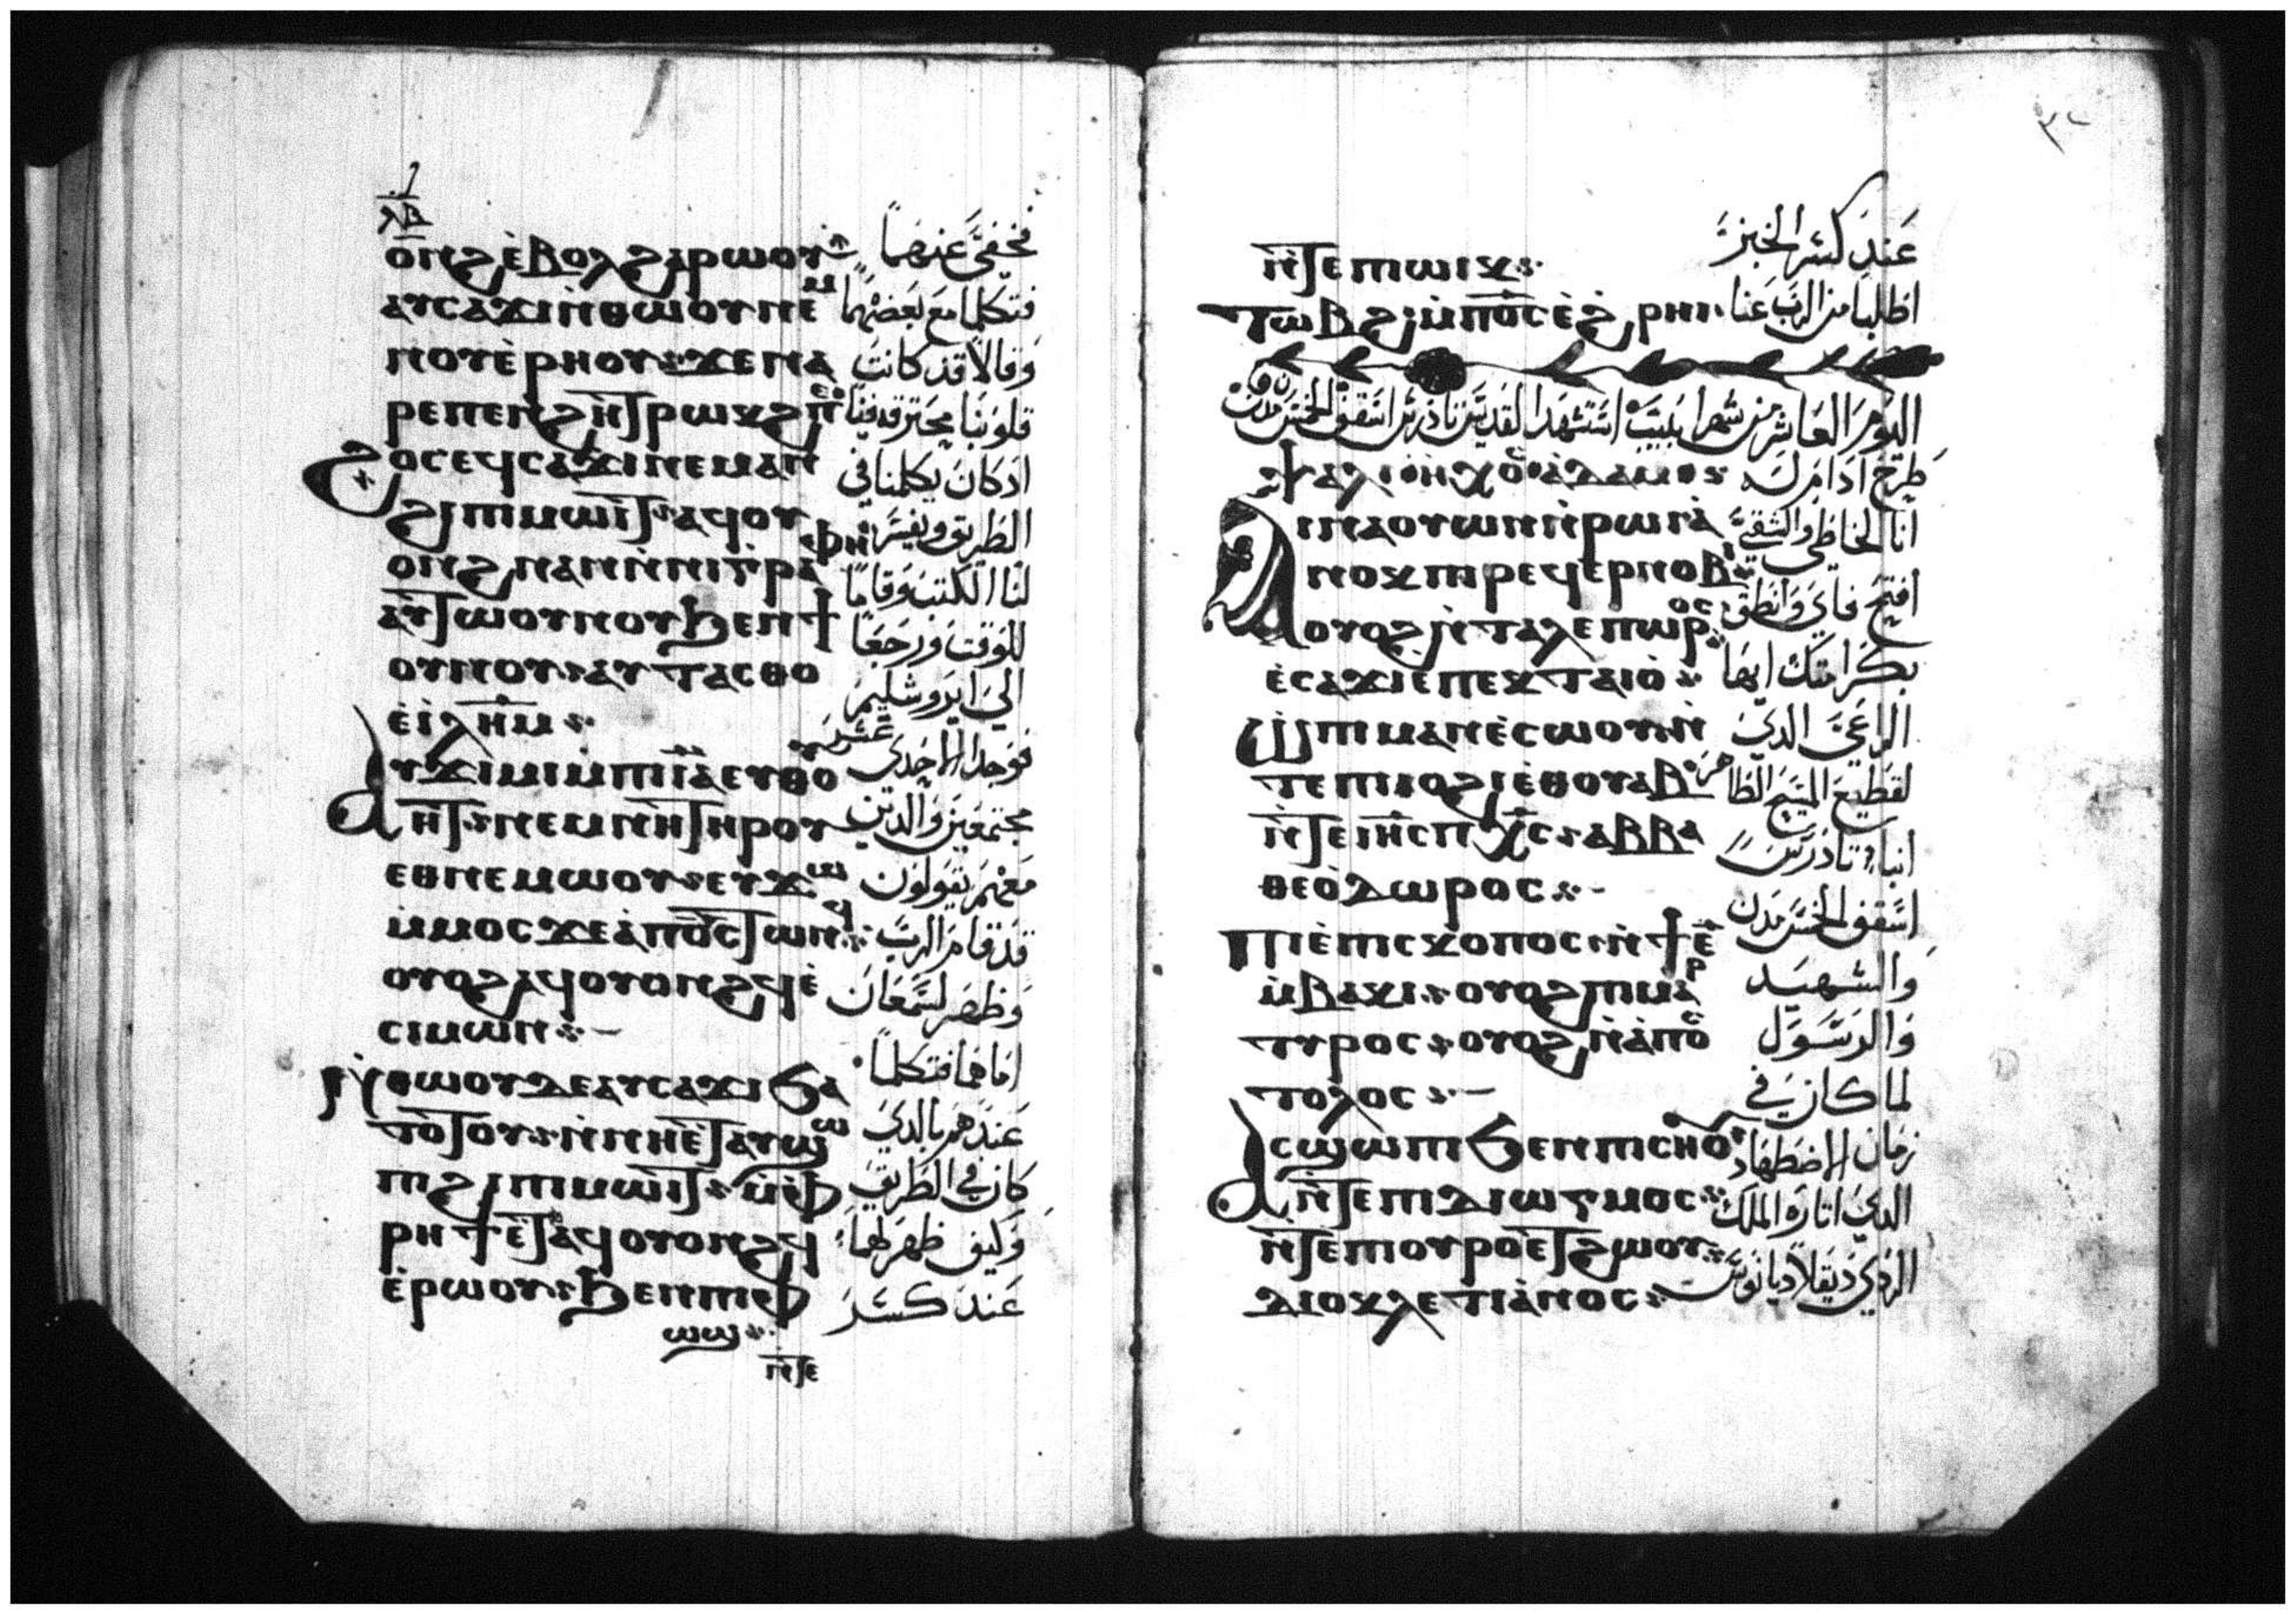 ⲗⲃ
ⲟⲛϩ ⲉ̀ⲃⲟⲗ ϩⲁⲣⲱⲟⲩ
فخفي عنهما
ⲁⲩⲥⲁϫⲓ ⲛ̀ⲑⲱⲟⲩ ⲛⲉⲙ
فتكلما مع بعضهما
ⲛⲟⲩⲉ̀ⲣⲏⲟⲩ ϫⲉ ⲛⲁ
وقالا قد كانت
ⲣⲉ ⲡⲉⲛϩⲏⲧ ⲣⲱⲕϩ ⲡⲉ
قلوبنا محترقه فينا
ϩⲟⲥ ⲉϥⲥⲁϫⲓ ⲛⲉⲙⲁⲛ
اد كان يكلمنا في
ϩⲓ ⲡⲓⲙⲱⲓⲧ ⲁϥⲟⲩ
الطريق ويفسر
ⲟⲛϩ ⲛⲁⲛ ⲛ̀ⲛⲓⲅ̀ⲣⲁⲫⲏ
لنا الكتب وقاما
ⲁⲩⲧⲱⲟⲩⲛⲟⲩ ϧⲉⲛ ϯ
للوقت ورجعا
ⲟⲩⲛⲟⲩ ⲁⲩⲧⲁⲥⲑⲟ
الي ايروشليم
ⲉ̀ⲓ̀ⲗⲏⲙ
ⲁⲩϫⲓⲙⲓ ⲙ̀ⲡⲓⲓ̅ⲁ̅ ⲉⲩⲑⲟ
فوجدا الاحدي عشر
ⲩⲏⲧ ⲛⲉⲙ ⲛⲏ ⲧⲏⲣⲟⲩ
مجتمعين والدين
ⲉⲑⲛⲉⲙⲱⲟⲩ ⲉⲩϫⲱ
معهم يقولون
ⲙ̀ⲙⲟⲥ ϫⲉ ⲁ̀ ⲡ⳪ ⲧⲱⲛϥ
قد قام الرب
ⲟⲩⲟϩ ⲁϥⲟⲩⲟⲛϩϥ ⲉ̀
وظهر لسمعان
ⲥⲓⲙⲱⲛ
ⲛ̀ⲑⲱⲟⲩ ⲇⲉ ⲁⲩⲥⲁϫⲓ ϧⲁ
اما هما فتكلما
ⲧⲟ̀ⲧⲟⲩ ⲛ̀ⲛⲏ ⲉ̀ⲧⲁⲩϣⲱ
عندهم بالدي
ⲡⲓ ϩⲓ ⲡⲓⲙⲱⲓⲧ ⲙ̀ⲫ
كان في الطريق
ⲣⲏϯ ⲉ̀ⲧⲁϥⲟⲩⲟⲛϩϥ
وكيف ظهر لهما
ⲉ̀ⲣⲱⲟⲩ ϧⲉⲛ ⲡⲓⲫ
عند كسر
ⲱϣ
ⲛ̀ⲧⲉ
٣٢
ⲛ̀ⲧⲉ ⲡⲓⲱⲓⲕ
عند كسر الخبز
ⲧⲱⲃϩ ⲙ̀ⲡ⳪ ⲉ̀ϩⲣⲏⲓ
اطلبا من الرب عنا
اليوم العاشر من شهر ابيب استشهد القديس تادرس اسقف الخمس مدن
ⲯⲁⲗⲓ ⲏⲭⲟⲥ ⲁ̀ⲇⲁⲙ
طرح ادام
ⲁⲓⲛⲁⲟⲩⲱⲛ ⲛ̀ⲣⲱⲓ ⲁ̀
انا الخاطي والشقي
ⲛⲟⲕ ⲡⲓⲣⲉϥⲉⲣⲛⲟⲃⲓ
افتح فاي وانطق
ⲟⲩⲟϩ ⲛ̀ⲧⲁⲗⲉⲡⲱⲣⲟⲥ
بكرامتك ايها
ⲉ̀ⲥⲁϫⲓ ⲉ̀ⲡⲉⲕⲧⲁⲓⲟ̀
ⲱ̀ ⲡⲓⲙⲁⲛⲉ̀ⲥⲱⲟⲩ ⲛ̀
الراعي الدي
ⲧⲉ ⲡⲓⲟϩⲓ ⲉⲑⲟⲩⲁⲃ
لقطيع المسيح الطاهر
ⲛ̀ⲧⲉ ⲓⲏⲥ ⲡⲭⲥ ⲁⲃⲃⲁ
انبا تادرس
ⲑⲉⲟ̀ⲇⲱⲣⲟⲥ
ⲡⲓⲉ̀ⲡⲓⲥⲕⲟⲡⲟⲥ ⲛ̀ϯⲉ̅
اسقف الخمس مدن
ⲙ̀ⲃⲁⲕⲓ ⲟⲩⲟϩ ⲡⲓⲙⲁⲣ
والشهيد
ⲧⲩⲣⲟⲥ ⲟⲩⲟϩ ⲛ̀ⲁ̀ⲡⲟⲥ
والرسول
ⲧⲟⲗⲟⲥ
لما كان في
ⲁⲥϣⲱⲡⲓ ϧⲉⲛ ⲡⲓⲥⲏⲟⲩ
زمان الاضطهاد
ⲛ̀ⲧⲉ ⲡⲓⲇⲓⲱⲅⲙⲟⲥ
الدي اتاره الملك
ⲛ̀ⲧⲉ ⲡⲓⲟⲩⲣⲟ ⲉⲧϩⲱⲟⲩ
الردي ديقلاديانوس
ⲇⲓⲟⲕⲗⲉⲧⲓⲁ̀ⲛⲟⲥ